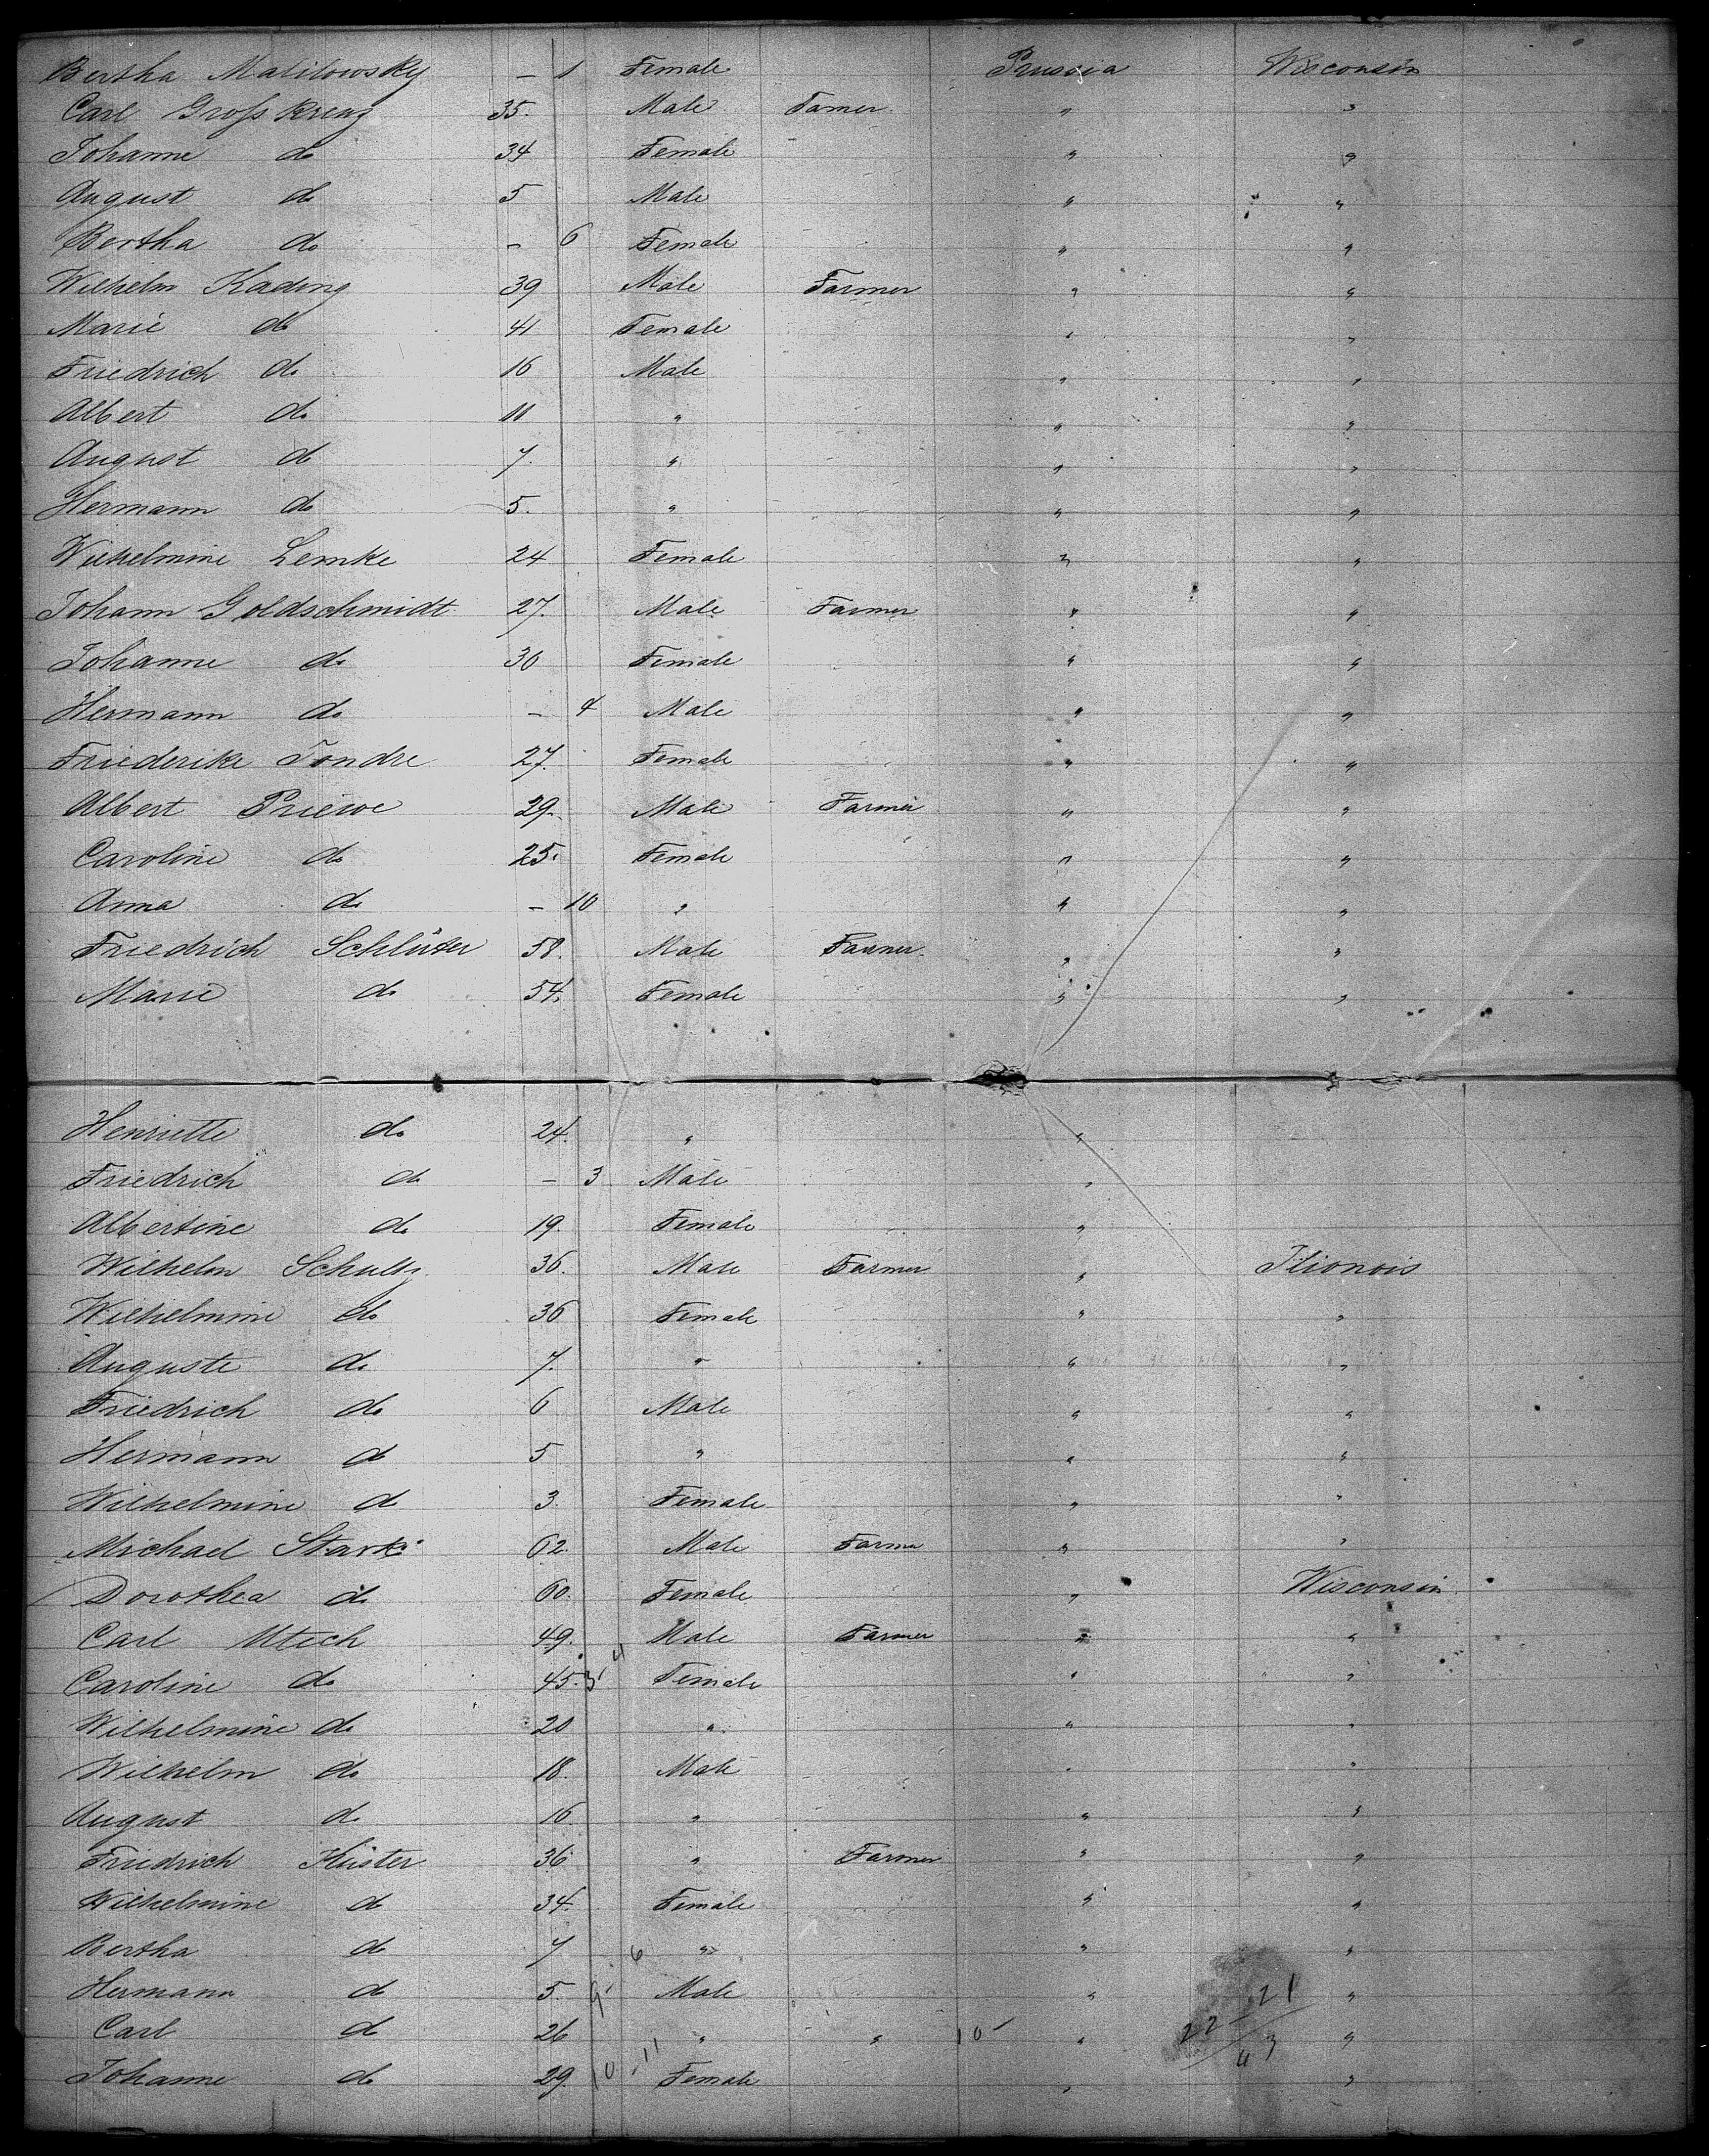 Bertha Malilowsky – 1 Female Prussia Wisconsin
Carl Grosskreuz 35. Male Farmer " "
Johanne do 34 Female " "
August do 5 Male " "
Bertha do – 6 Female " "
Wilhelm Kading 39 Male Farmer " "
Marie do 41 Female " "
Friedrich do 16 Male " "
Albert do 11 " " "
August do 7. " " "
Hermann do 5. " " "
Wilhelmine Lemke 24 Female " "
Johann Goldschmidt 27. Male Farmer " "
Johanne do 30 Female " "
Hermann do – 4 Male " "
Friederike Tondre 27. Female " "
Albert Priewe 29. Male Farmer " "
Caroline do 25. Female " "
Anna do – 10 " " "
Friedrich Schlüter 58. Male Farmer " "
Marie do 54. Female " "
Henriette do 24. " "
Friedrich do – 3 Male "
Albertine do 19. Female "
Wilhelm Schultz 36. Male Farmer " Ilionois
Wilhelmine do 36 Female " "
Auguste do 7. " " "
Friedrich do 6 Male " "
Hermann do 5 " " "
Wilhelmine do 3 Female " "
Michael Stark 62. Male Farmer " "
Dorothea do 60. Female " Wisconsin
Carl Utech 49. Male Farmer " "
Caroline do 45. 3-4 Female " "
Wilhelmine do 20 " " "
Wilhelm do 18. Male " "
August do 16. " " "
Friedrich Küster 36 " Farmer " "
Wilhelmine do 34. Female " "
Bertha do 7 " " "
Hermann do 5. 9-6 Male " 21 "
Carl do 26 " " 10- " 22 "
Johanne do 29. 10-11 Female " 43 "